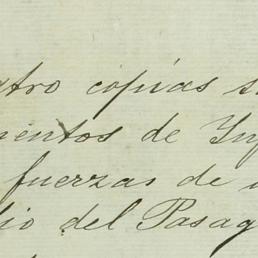 tro copias s
mentos de Inf
fuerzas de
io del Pasag